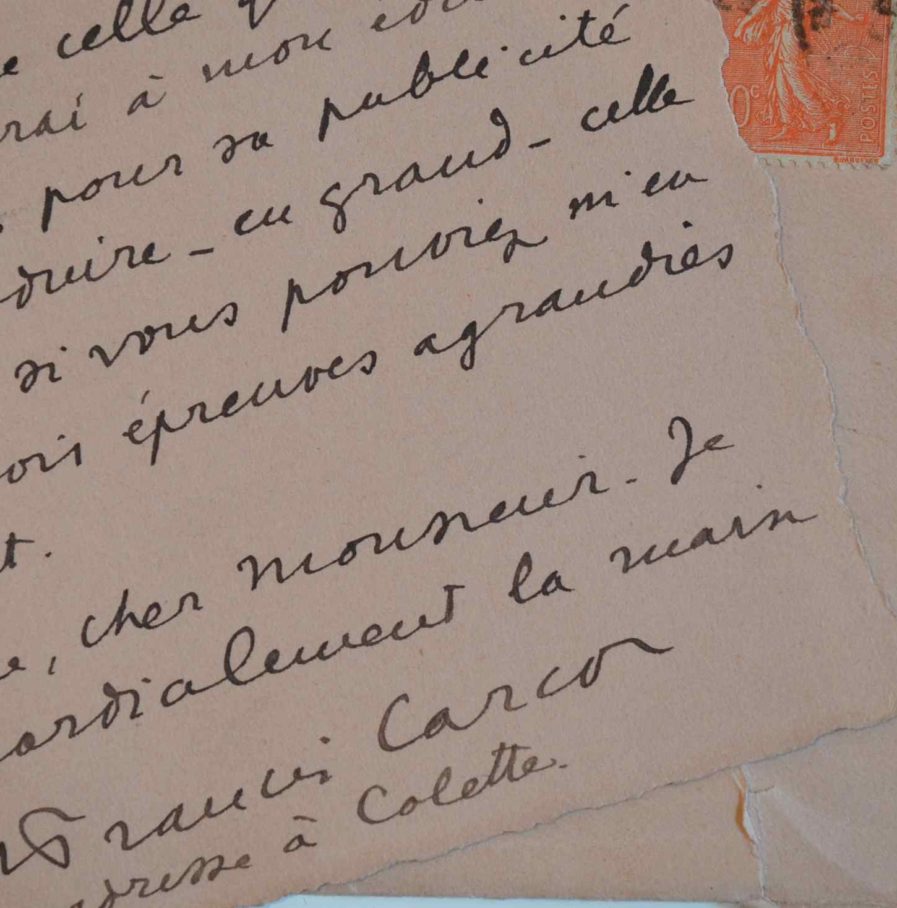 celle
rai à mon
pour sa publicité
duire - en grand - celle
si vous pouviez m'en
épreuves agrandies
t.
e, cher monsieur. Je
ordialement la main
Francis Carco
adresse à Colette.
0c
POSTES